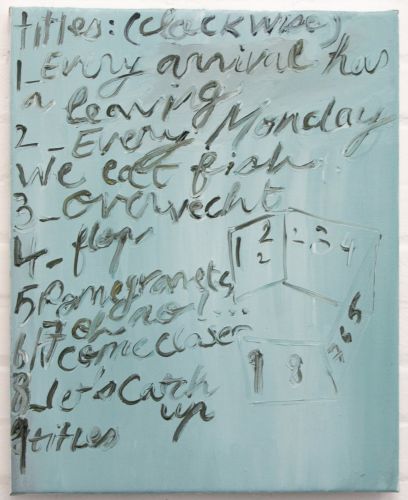 titles: (clockwise)
1_Every arrival has
a leaving
2_Every Monday
we eat fish
3_overvecht
4_flop
5 Pomegranets
oh no!...
6/7 come closer
8_let's catch
up
9 titles
1 2 2 - 3 4
5
6
7
9 8